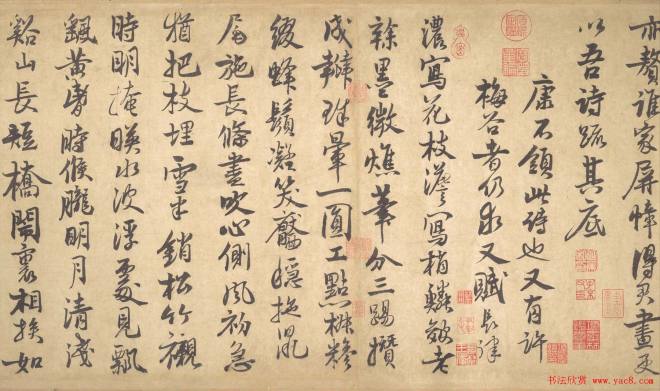 亦贅誰家屏幛得君畫更
以吾詩疏其底
康不領此詩也又有許
梅谷者仍求又賦長律
濃寫花枝淡寫梢鱗皴老
榦墨微燋筆分三踢攢
成瓣珠暈一圓工點椒糝
綴蜂鬚凝笑靨穩拖鼠
尾施長條盡吹心側風初急
猶把枝埋雪半銷松竹襯
時明掩映水波浮處見飄
飄黃昏時候朧明月清淺
谿山長短橋鬧裏相挨如
书法欣赏 www.yac8.com